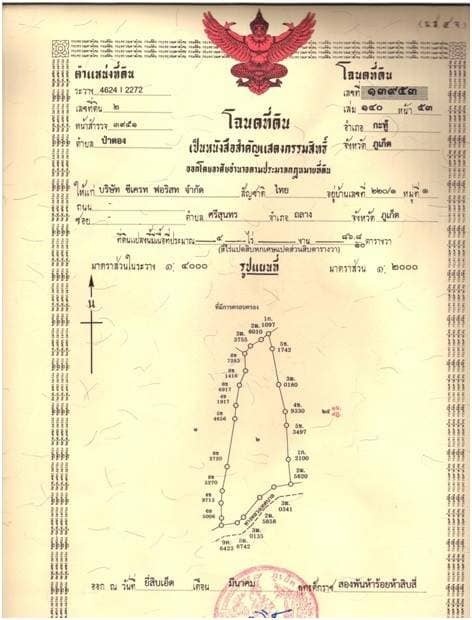 (น.ส. ๔ จ.)
ตำแหน่งที่ดิน
ระวาง 4624 I 2272
เลขที่ดิน ๒
หน้าสำรวจ ๓๙๕๑
ตำบล ป่าตอง
โฉนดที่ดิน
เลขที่ ๑๓๙๕๓
เล่ม ๑๔๐ หน้า ๕๓
อำเภอ กะทู้
จังหวัด ภูเก็ต
โฉนดที่ดิน
เป็นหนังสือสำคัญแสดงกรรมสิทธิ์
ออกโดยอาศัยอำนาจตามประมวลกฎหมายที่ดิน
ให้แก่ บริษัท ซีเครท ฟอริสท จำกัด สัญชาติ ไทย อยู่บ้านเลขที่ ๒๒๐/๑ หมู่ที่ ๑
ถนน
ซอย - ตำบล ศรีสุนทร อำเภอ ถลาง จังหวัด ภูเก็ต
ที่ดินแปลงนี้มีเนื้อที่ประมาณ ๔ ไร่ - งาน ๘๖.๘/๑๐ ตารางวา
(สี่ไร่แปดสิบหกเศษแปดส่วนสิบตารางวา)
มาตราส่วนในระวาง ๑: ๔๐๐๐
รูปแผนที่
มาตราส่วน ๑: ๒๐๐๐
น
ที่มีการครอบครอง
1ก
1097
2ฒ
6010
3ฒ
3755
7283
5ข
1742
1418
3ฒ
0180
6917
1917
4ข
9330
4656
5ข
3497
๑
๒
๒๕
1ก
2100
3720
2ฒ
5620
1270
5ข
9713
3ฒ
0341
5006
2ฒ
5858
3ฒ
0135
9ก
6423
5ข
6742
ออก ณ วันที่ ยี่สิบเอ็ด เดือน มีนาคม พุทธศักราช สองพันห้าร้อยห้าสิบสี่